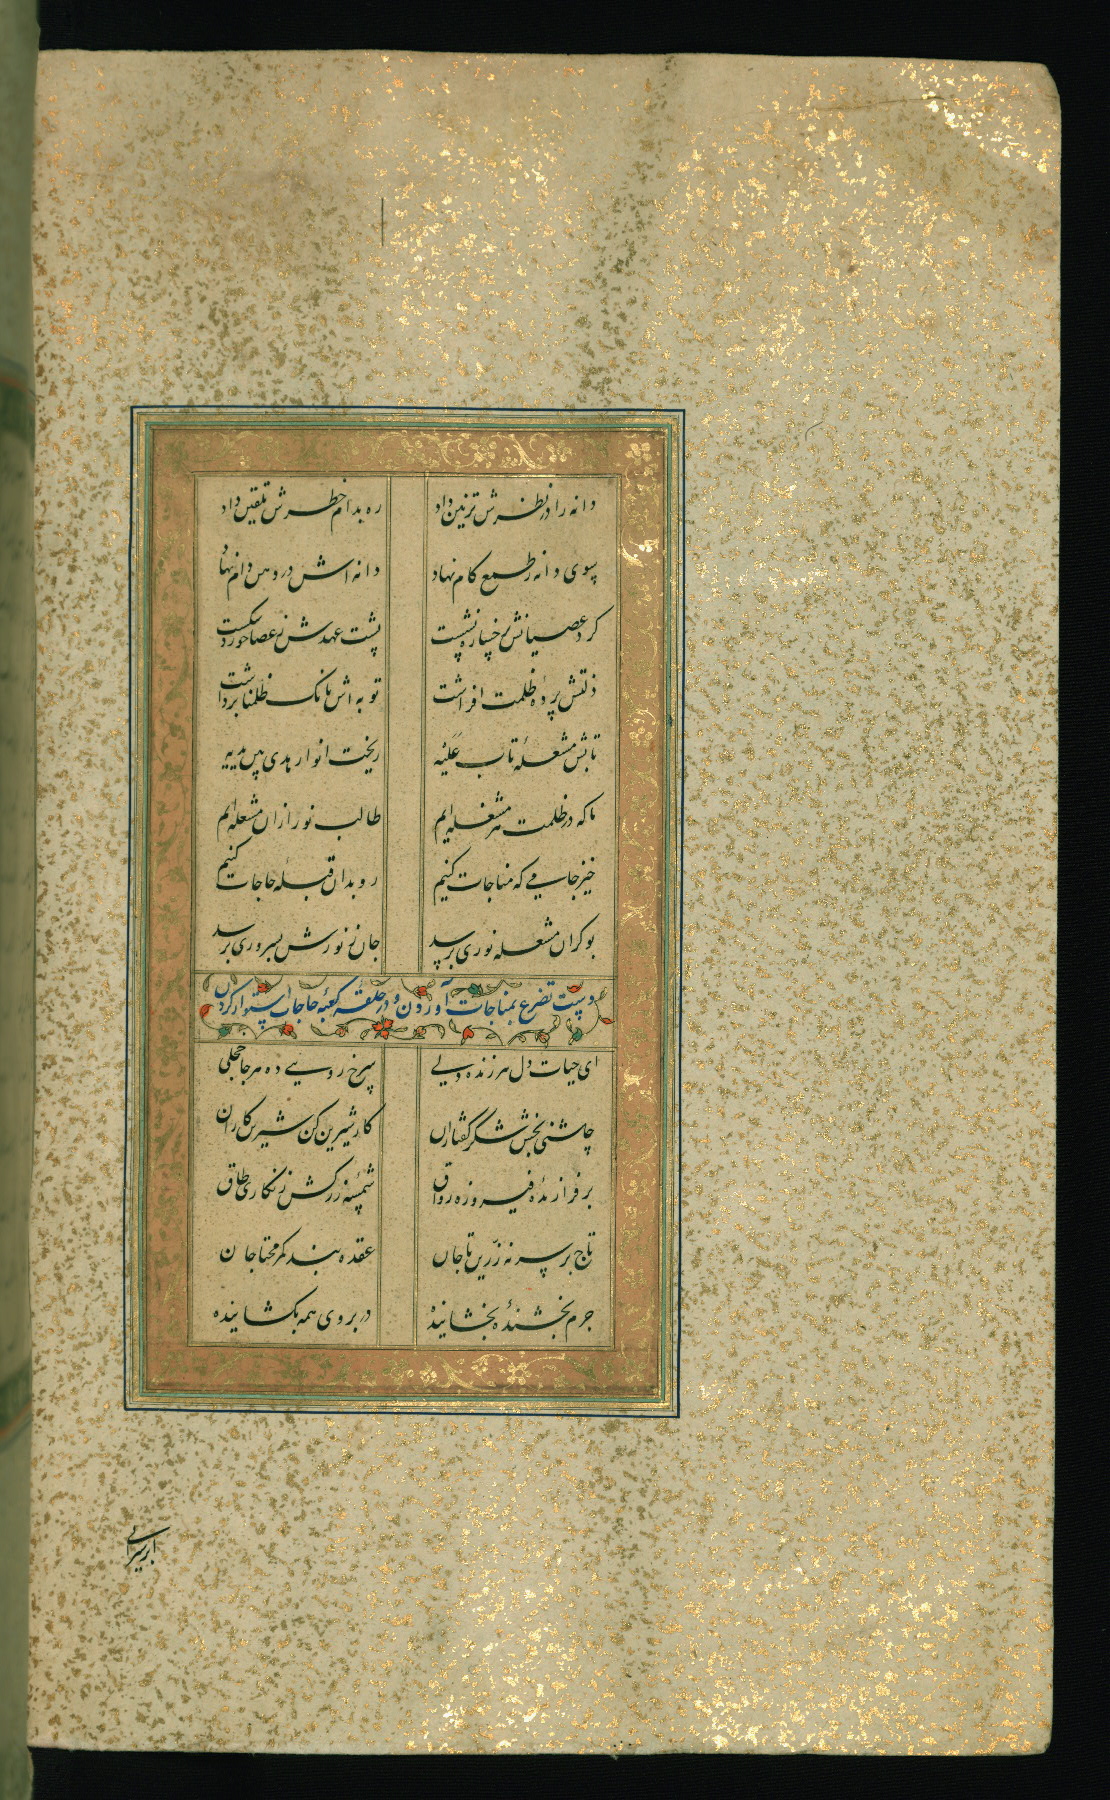 دانه را در نظرش تزیین داد ره بدام خطرش تلقین داد
سوی دانه ز طمع گام نهاد دانه اش در دهن دام نهاد
کرد عصیانش نخست پشت عهدش ز عصا خورد شکست
ذلتش پردهٔ ظلمت افراشت توبه اش بانک ظلمنا برداشت
تابش مشعلهٔ تاب علیه ریخت انوار هدی بین یدیه
ما که در ظلمت هر مشغله ایم طالب نور ازان مشعله ایم
خیز جامی که مناجات کنیم رو بدان قبلهٔ حاجات کنیم
بو کزان مشعله نوری برسد جان ز نورش بسروری برسد
دست تضرع بمناجات آوردن و در حلقهٔ کعبهٔ حاجات استوار کردن
ای حیات دل هر زنده دلی سرخ رویی ده هر جا خجلی
چاشنی بخش شکر گفتاران کار شیرین کن شیرین کاران
بر فرازندهٔ فیروزه رواق شمسهٔ زرکش زنگاری طاق
تاج بر سر نه زرین تاجان عقده بند کمر محتاجان
جرم بخشندهٔ بخشاینده در بروی همه بگشاینده
ابر سیرابی